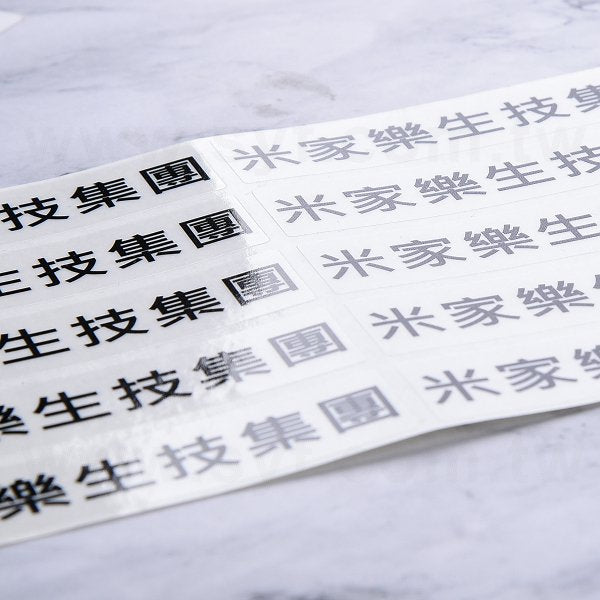 生技集團 米家樂生技集
生技集團 米家樂生技
生技集團 米家樂生
樂生技集團 米家樂生
樂生技集團 米家樂